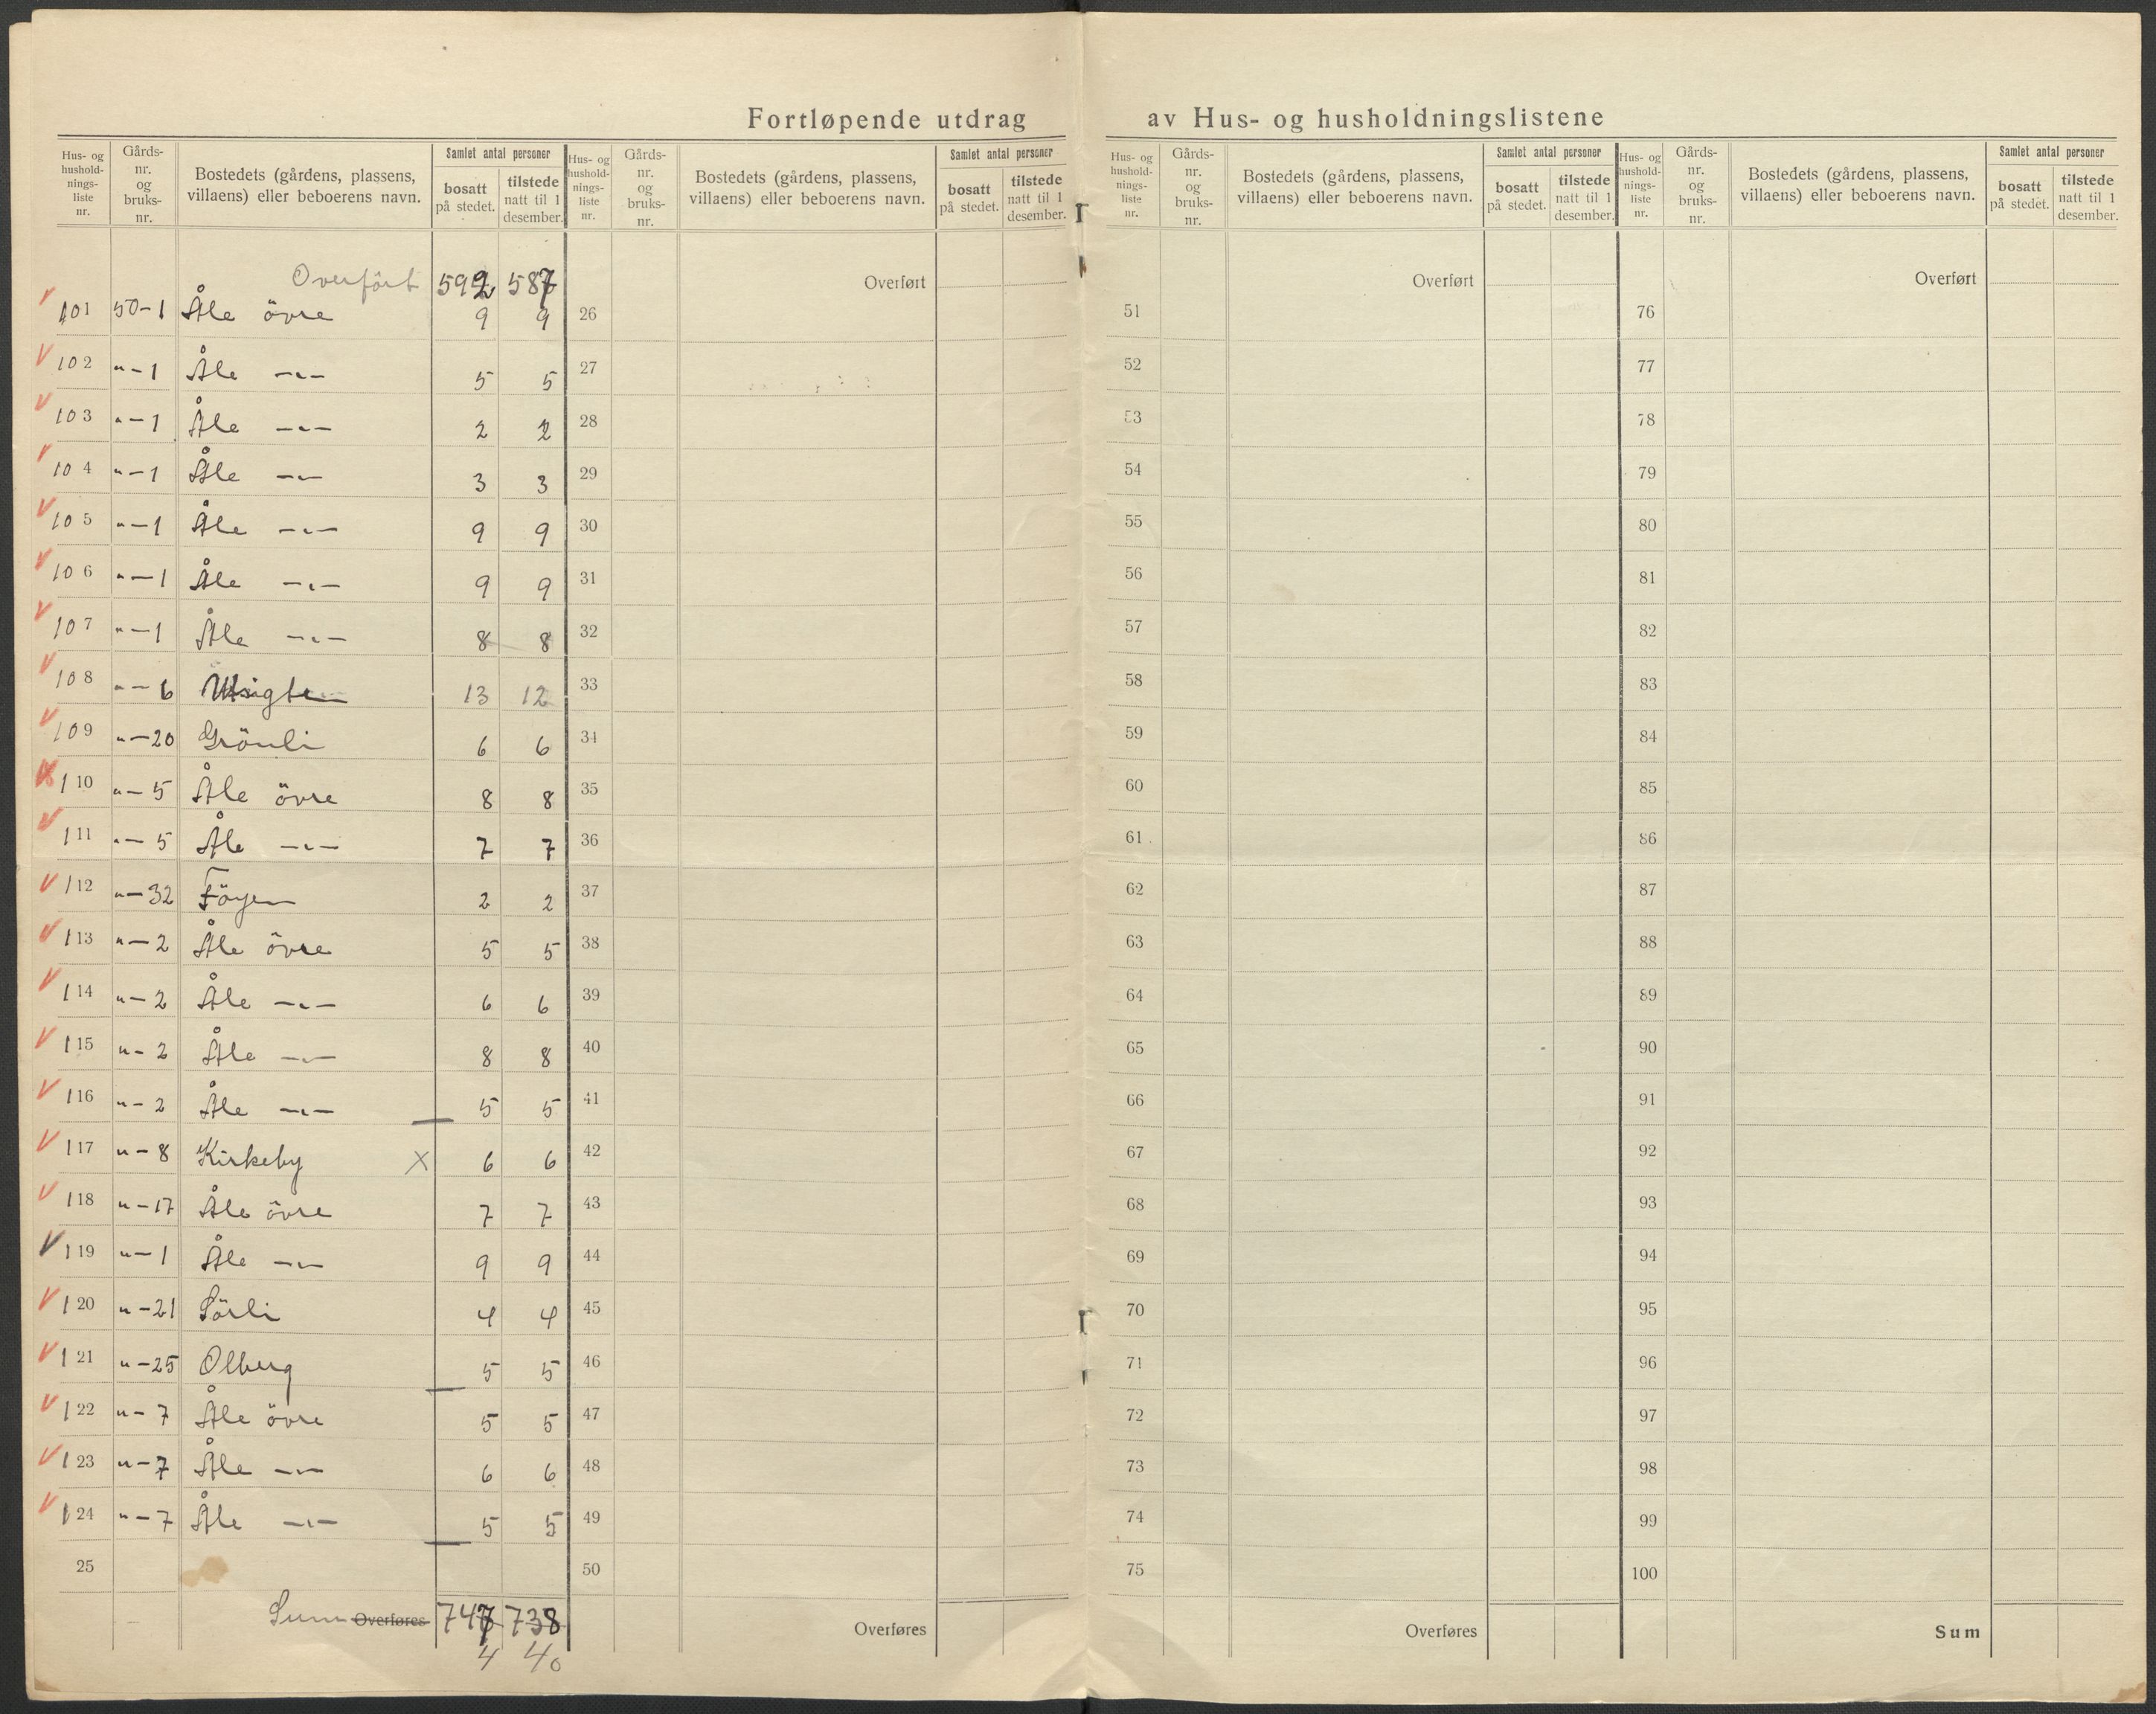 Fortløpende utdrag av Hus- og husholdningslistene
Hus- og husholdnings- liste nr. | Gårds- nr. og bruks- nr. | Bostedets (gårdens, plassens, villaens) eller beboerens navn. | Samlet antal personer | bosatt på stedet. | tilstede natt til 1 desember.
Hus- og husholdnings- liste nr. | Gårds- nr. og bruks- nr. | Bostedets (gårdens, plassens, villaens) eller beboerens navn. | Samlet antal personer | bosatt på stedet. | tilstede natt til 1 desember.
Hus- og husholdnings- liste nr. | Gårds- nr. og bruks- nr. | Bostedets (gårdens, plassens, villaens) eller beboerens navn. | Samlet antal personer | bosatt på stedet. | tilstede natt til 1 desember.
Hus- og husholdnings- liste nr. | Gårds- nr. og bruks- nr. | Bostedets (gårdens, plassens, villaens) eller beboerens navn. | Samlet antal personer | bosatt på stedet. | tilstede natt til 1 desember.
Overfört 592 587 Overført Overført Overført
101 50-1 Åle övre 9 9 26 51 76
102 "-1 Åle -"- 5 5 27 52 77
103 "-1 Åle -"- 2 2 28 53 78
104 "-1 Åle -"- 3 3 29 54 79
105 "-1 Åle -"- 9 9 30 55 80
106 "-1 Åle -"- 9 9 31 56 81
107 "-1 Åle -"- 8 8 32 57 82
108 "-6 13 12 33 58 83
109 "-20 Grönli 6 6 34 59 84
110 "-5 Åle övre 8 8 35 60 85
111 "-5 Åle -"- 7 7 36 61 86
112 "-32 Föyen 2 2 37 62 87
113 "-2 Åle övre 5 5 38 63 88
114 "-2 Åle -"- 6 6 39 64 89
115 "-2 Åle -"- 8 8 40 65 90
116 "-2 Åle -"- 5 5 41 66 91
117 "-8 Kirkeby X 6 6 42 67 92
118 "-17 Åle övre 7 7 43 68 93
119 "-1 Åle -"- 9 9 44 69 94
120 "-21 Sörli 4 4 45 70 95
121 "-25 Olberg 5 5 46 71 96
122 "-7 Åle övre 5 5 47 72 97
123 "-7 Åle -"- 6 6 48 73 98
124 "-7 Åle -"- 5 5 49 74 99
25 50 75 100
Sum Overføres 747 738 Overføres Overføres Sum
4 40